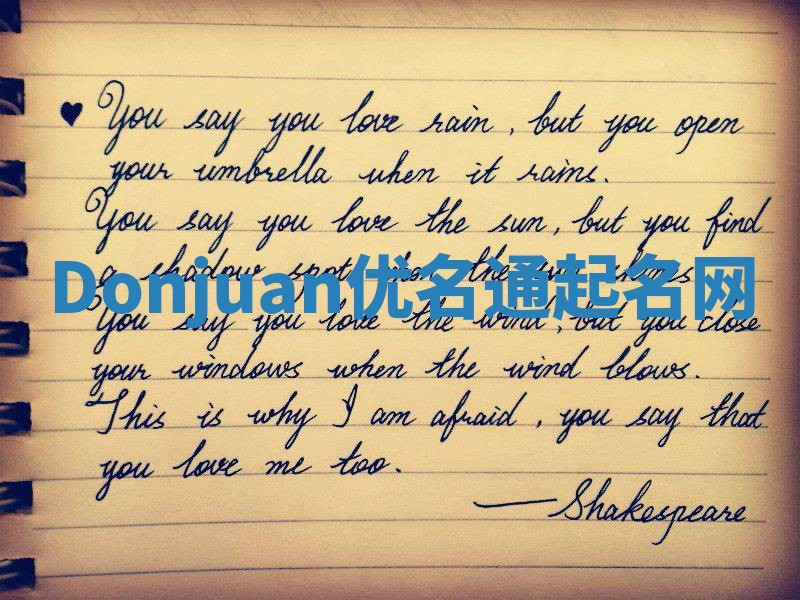 ♥ You say you love rain, but you open
your umbrella when it rains.
You say you love the sun, but you find
a shadow spot when the sun shines
Donjuan优名通起名网
You say you love the wind, but you close
your windows when the wind blows.
This is why I am afraid, you say that
you love me too.
—Shakespeare